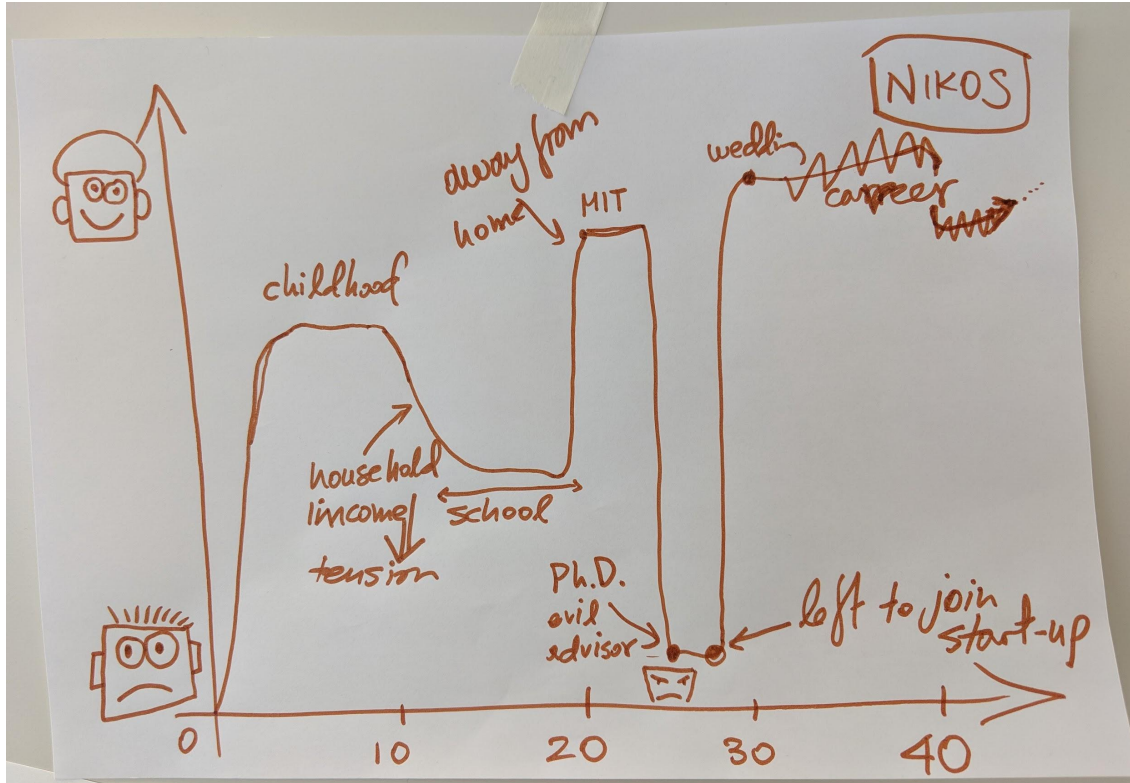 NIKOS
away from
home
MIT
wedding
carreer
childhood
household
income
tension
school
Ph.D.
evil
advisor
left to join
start-up
0
10
20
30
40